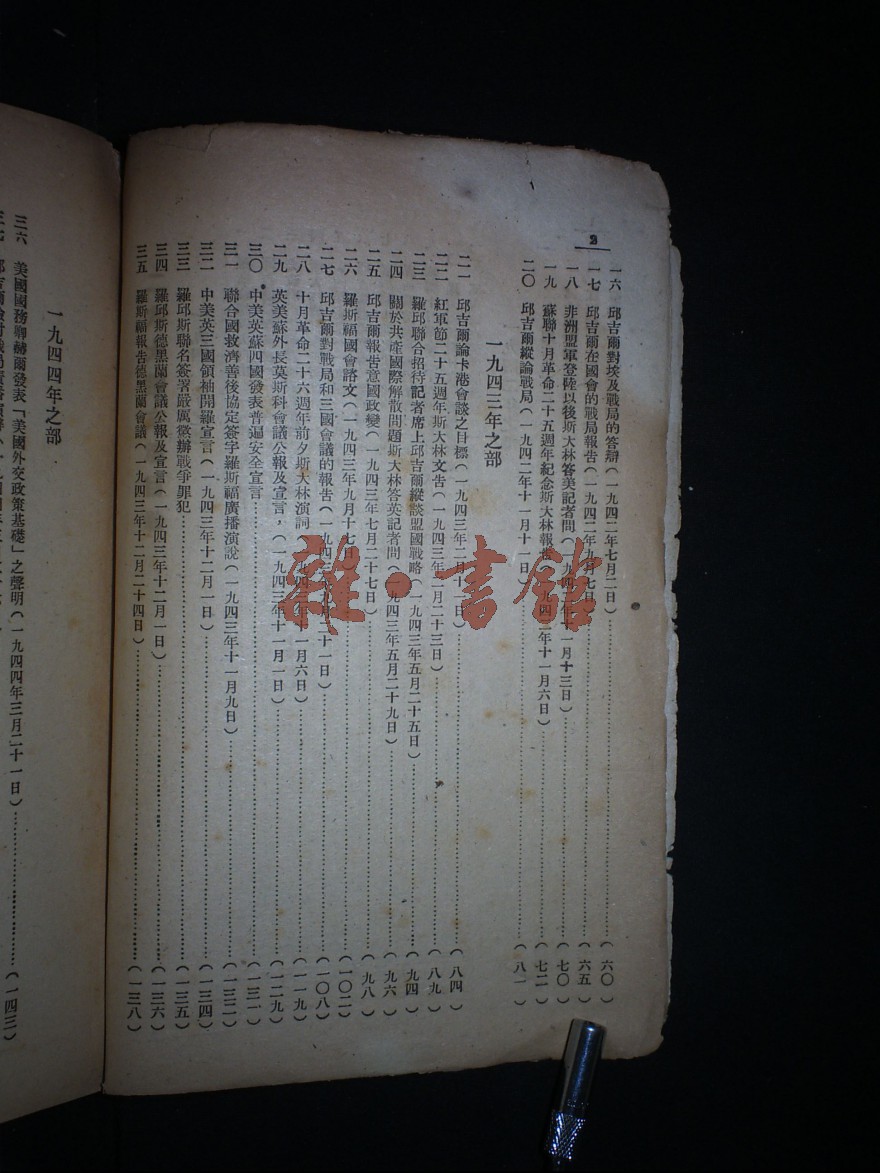 2
一六 邱吉爾對埃及戰局的答辯(一九四二年七月二日)……(六〇)
一七 邱吉爾在國會的戰局報告(一九四二年九月七日)……(六五)
一八 非洲盟軍登陸以後斯大林答美記者問(一九四二年十一月十三日)……(七〇)
一九 蘇聯十月革命二十五週年紀念斯大林報告(一九四二年十一月六日)……(七二)
二〇 邱吉爾縱論戰局(一九四二年十一月十一日)……(八一)
一九四三年之部
二一 邱吉爾論卡港會談之目標(一九四三年二月十一日)……(八四)
二二 紅軍節二十五週年斯大林文告(一九四三年二月二十三日)……(八九)
二三 羅邱聯合招待記者席上邱吉爾縱談盟國戰略(一九四三年五月二十五日)……(九四)
二四 關於共產國際解散問題斯大林答英記者問(一九四三年五月二十九日)……(九六)
二五 邱吉爾報告意國政變(一九四三年七月二十七日)……(九八)
二六 羅斯福國會諮文(一九四三年九月十七日)……(一〇二)
二七 邱吉爾對戰局和三國會議的報告(一九四三年九月二十一日)……(一〇八)
二八 十月革命二十六週年前夕斯大林演詞(一九四三年十一月六日)……(一一九)
二九 英美蘇外長莫斯科會議公報及宣言,(一九四三年十一月一日)……(一二九)
三〇 中美英蘇四國發表普遍安全宣言……(一三一)
三一 聯合國救濟善後協定簽字羅斯福廣播演說(一九四三年十一月九日)……(一三二)
三二 中美英三國領袖開羅宣言(一九四三年十二月一日)……(一三四)
三三 羅邱斯聯名簽署嚴厲懲辦戰爭罪犯……(一三五)
三四 羅邱斯德黑蘭會議公報及宣言(一九四三年十二月一日)……(一三六)
三五 羅斯福報告德黑蘭會議(一九四三年十二月二十四日)……(一三八)
一九四四年之部
三六 美國國務卿赫爾發表「美國外交政策基礎」之聲明(一九四四年三月二十一日)……(一四三)
雜·書館